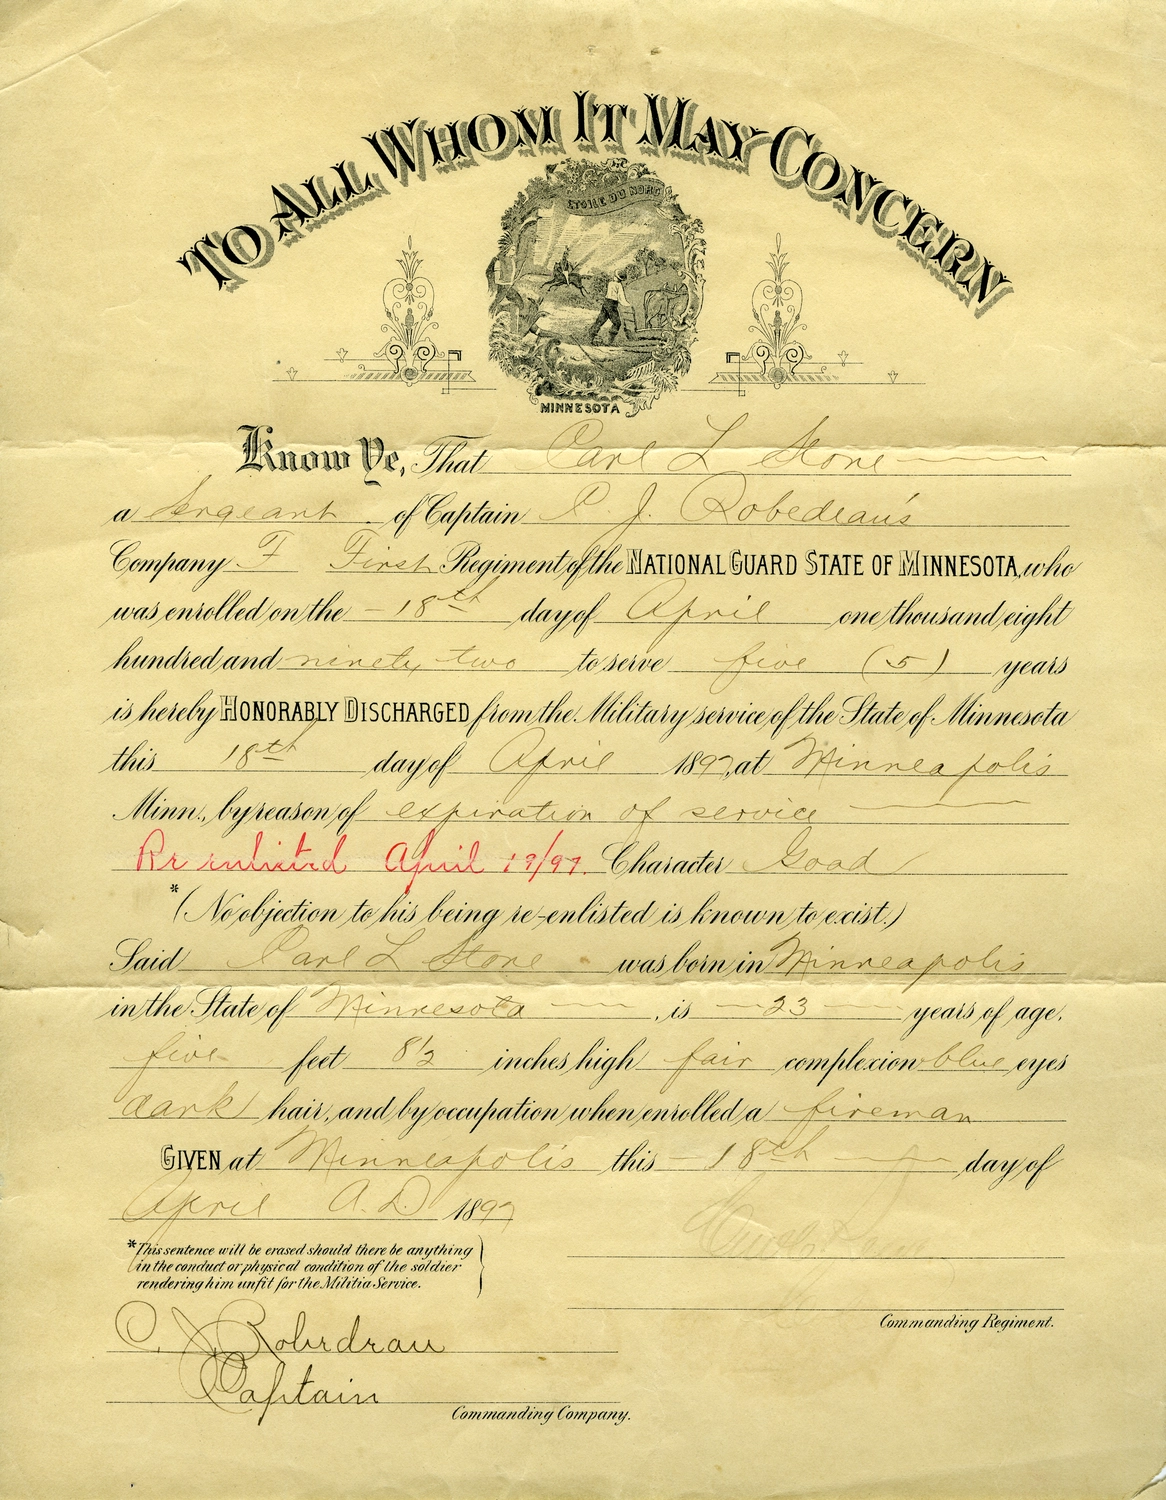 TO ALL WHOM IT MAY CONCERN
ETOILE DU NORD
MINNESOTA
Know Ye, That Carl L Stone
a Sergeant of Captain C. J. Robedeau's
Company F First Regiment of the NATIONAL GUARD STATE OF MINNESOTA, who
was enrolled on the 18th day of April one thousand eight
hundred and ninety two to serve five (5) years
is hereby HONORABLY DISCHARGED from the Military service of the State of Minnesota
this 18th day of April 1897, at Minneapolis
Minn., by reason of expiration of service
Re enlisted April 19/97. Character Good
*(No objection to his being re-enlisted is known to exist.)
Said Carl L Stone was born in Minneapolis
in the State of Minnesota, is 23 years of age,
five feet 8 1/2 inches high fair complexion blue eyes
dark hair, and by occupation when enrolled a fireman
GIVEN at Minneapolis this 18th day of
April A.D. 1897
*This sentence will be erased should there be anything
in the conduct or physical condition of the soldier
rendering him unfit for the Militia Service.
Commanding Regiment.
C. J. Robedeau
Captain
Commanding Company.